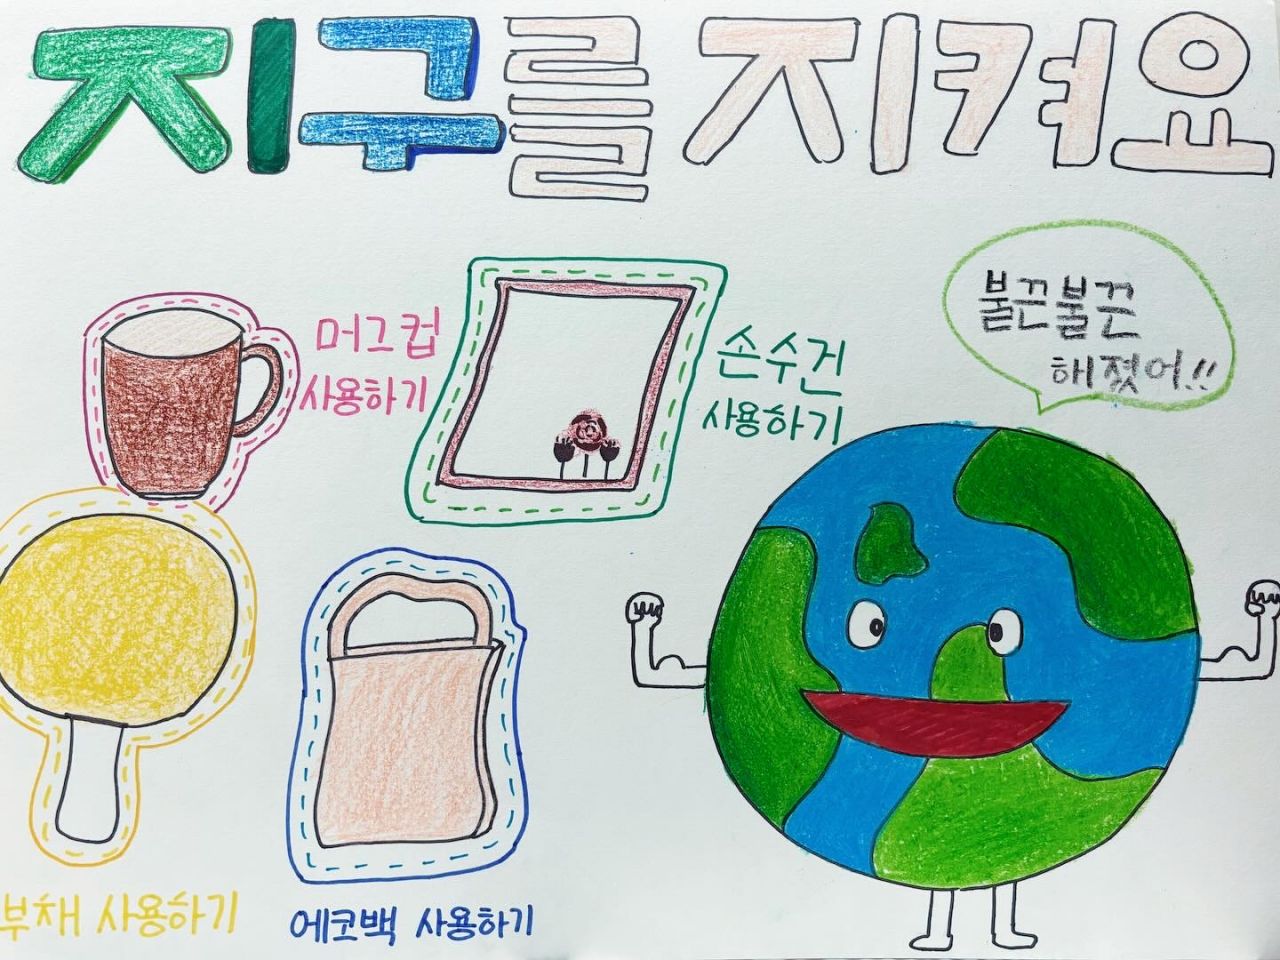 지구를 지켜요
불끈불끈
해졌어!!
머그컵
사용하기
손수건
사용하기
부채 사용하기
에코백 사용하기